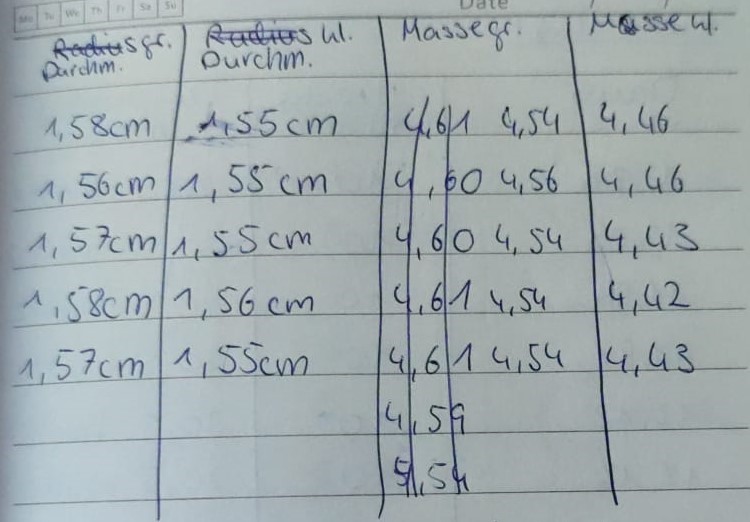 Mo Tu We Th Fr Sa Su Date
Radius gr. Radius kl. Masse gr. Masse kl.
Durchm. Durchm.
1,58cm 1,55cm 4,61 4,54 4,46
1,56cm 1,55cm 4,60 4,56 4,46
1,57cm 1,55cm 4,60 4,54 4,43
1,58cm 1,56cm 4,61 4,54 4,42
1,57cm 1,55cm 4,61 4,54 4,43
4,59